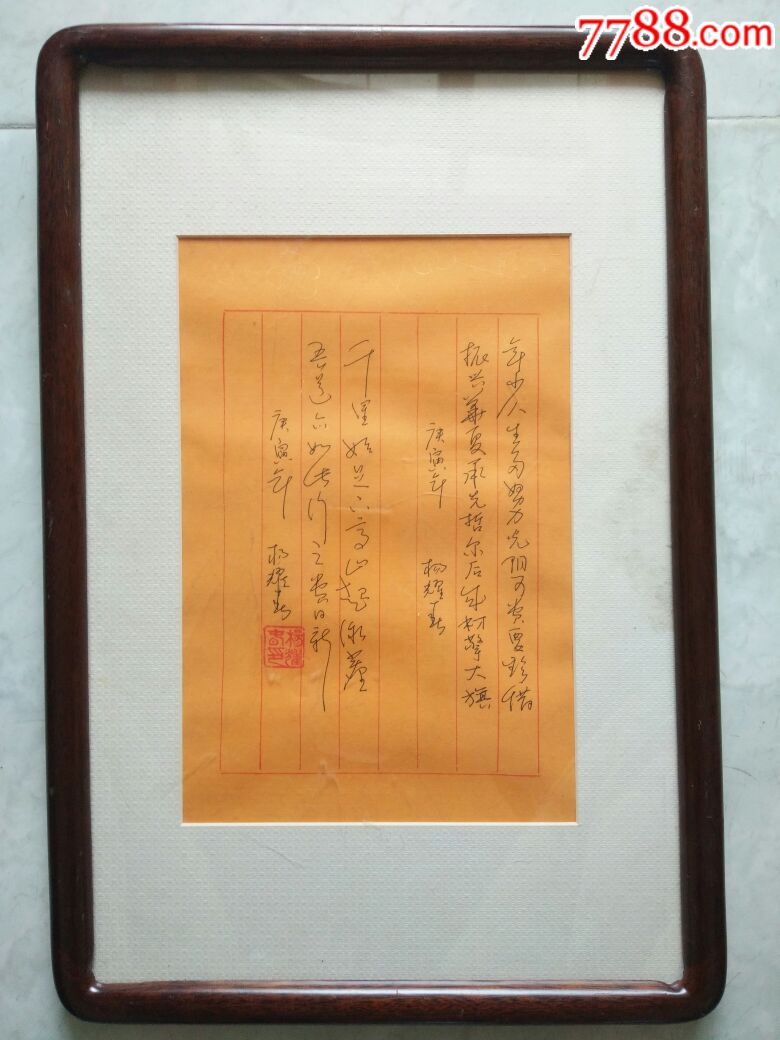 7788.com
年少人生努力光阴可贵珍惜
振兴华夏承先哲尔后成材擎大旗
庚寅年 杨耀春
千里始足下高山起微尘
吾道亦如此行之贵日新
庚寅年 杨耀春
杨耀春印